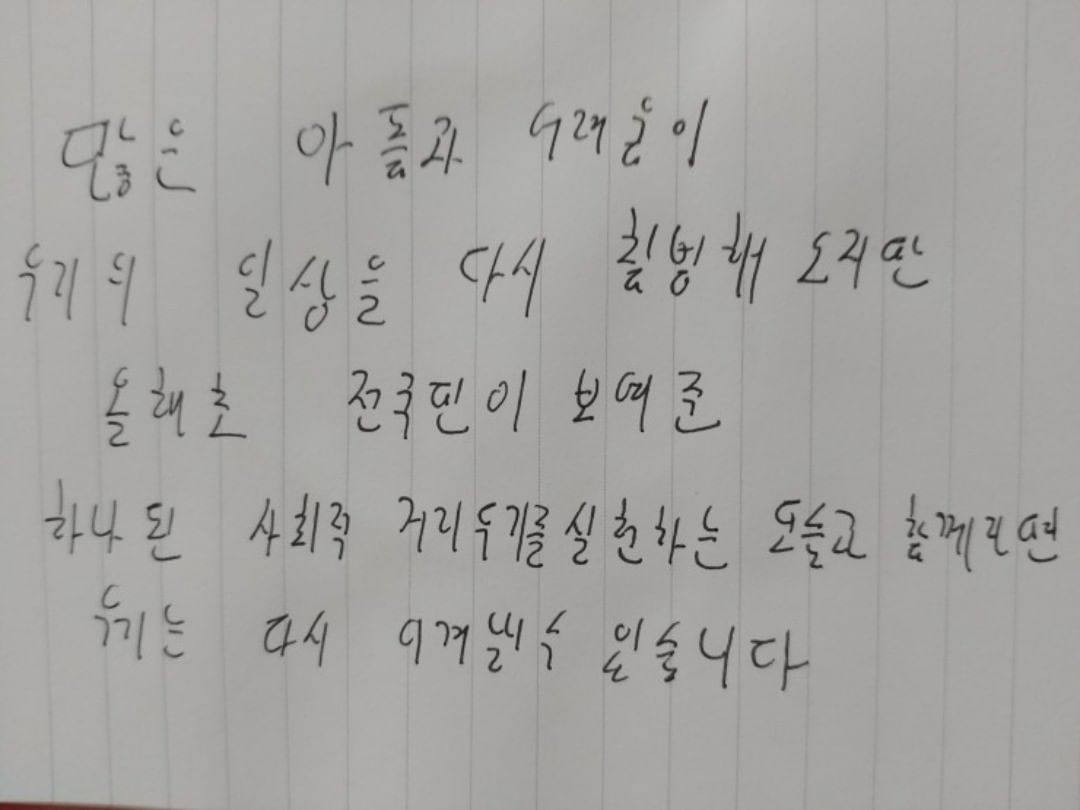 많은 아픔과 어려움이
우리의 일상을 다시 힘들게 했지만
올해로 전국민이 보여준
하나된 사회적 거리두기를 실천하는 모습과 함께라면
우리는 다시 이겨낼수 있습니다